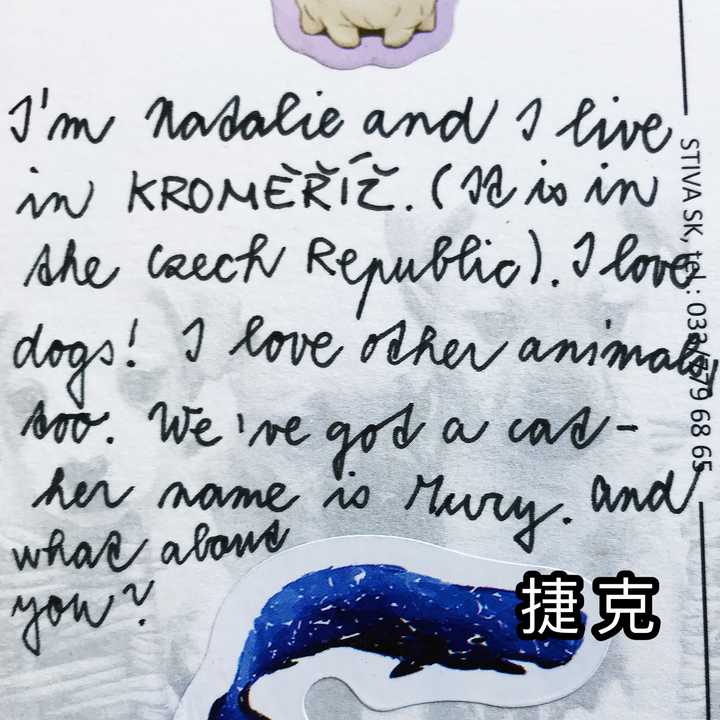 I'm Natalie and I live
in KROMĚŘÍŽ. (It is in
the Czech Republic). I love
dogs! I love other animals,
too. We've got a cat -
her name is Mury. And
what about
you?
STIVA SK, tel.: 033/579 68 65
捷克